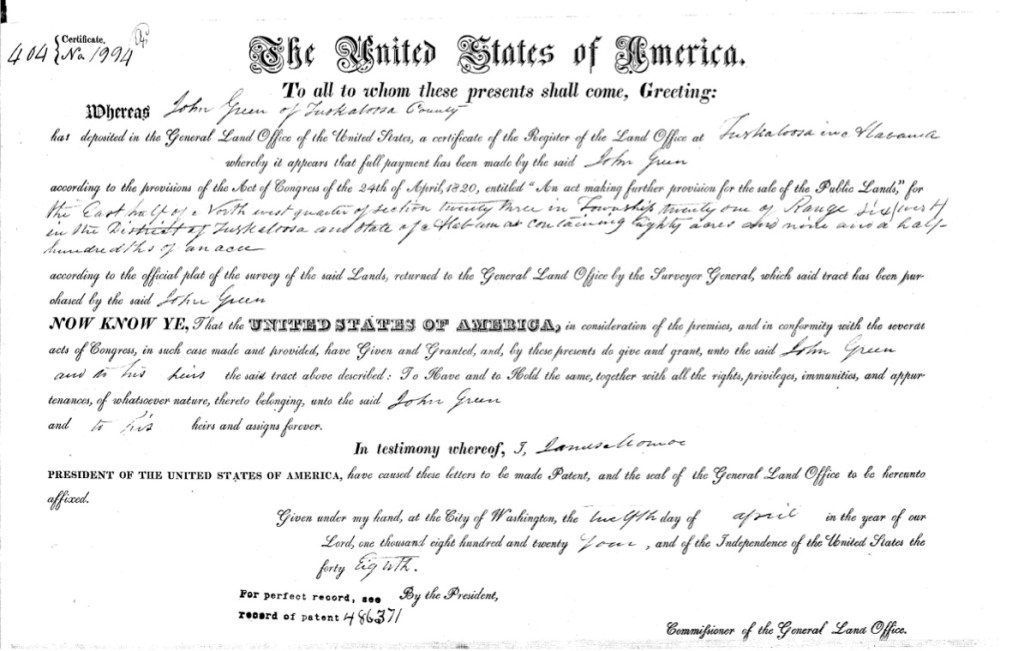 404 { Certificate, No. 1994
The United States of America.
To all to whom these presents shall come, Greeting:
Whereas John Green of Tuskaloosa County
has deposited in the General Land Office of the United States, a certificate of the Register of the Land Office at Tuskaloosa in Alabama
whereby it appears that full payment has been made by the said John Green
according to the provisions of the Act of Congress of the 24th of April, 1820, entitled "An act making further provision for the sale of the Public Lands," for
the East half of North west quarter of section twenty three in Township twenty one of Range six (west)
in the District of Tuskaloosa and State of Alabama containing Eighty acres and nine and a half
hundredths of an acre
according to the official plat of the survey of the said Lands, returned to the General Land Office by the Surveyor General, which said tract has been pur-
chased by the said John Green
NOW KNOW YE, That the UNITED STATES OF AMERICA, in consideration of the premises, and in conformity with the several
acts of Congress, in such case made and provided, have Given and Granted, and, by these presents do give and grant, unto the said John Green
and to his heirs the said tract above described: To Have and to Hold the same, together with all the rights, privileges, immunities, and appur-
tenances, of whatsoever nature, thereto belonging, unto the said John Green
and to his heirs and assigns forever.
In testimony whereof, I, James Monroe
PRESIDENT OF THE UNITED STATES OF AMERICA, have caused these letters to be made Patent, and the seal of the General Land Office to be hereunto
affixed.
Given under my hand, at the City of Washington, the twelfth day of april in the year of our
Lord, one thousand eight hundred and twenty four, and of the Independence of the United States the
forty Eighth.
For perfect record, see By the President,
record of patent 486371
Commissioner of the General Land Office.